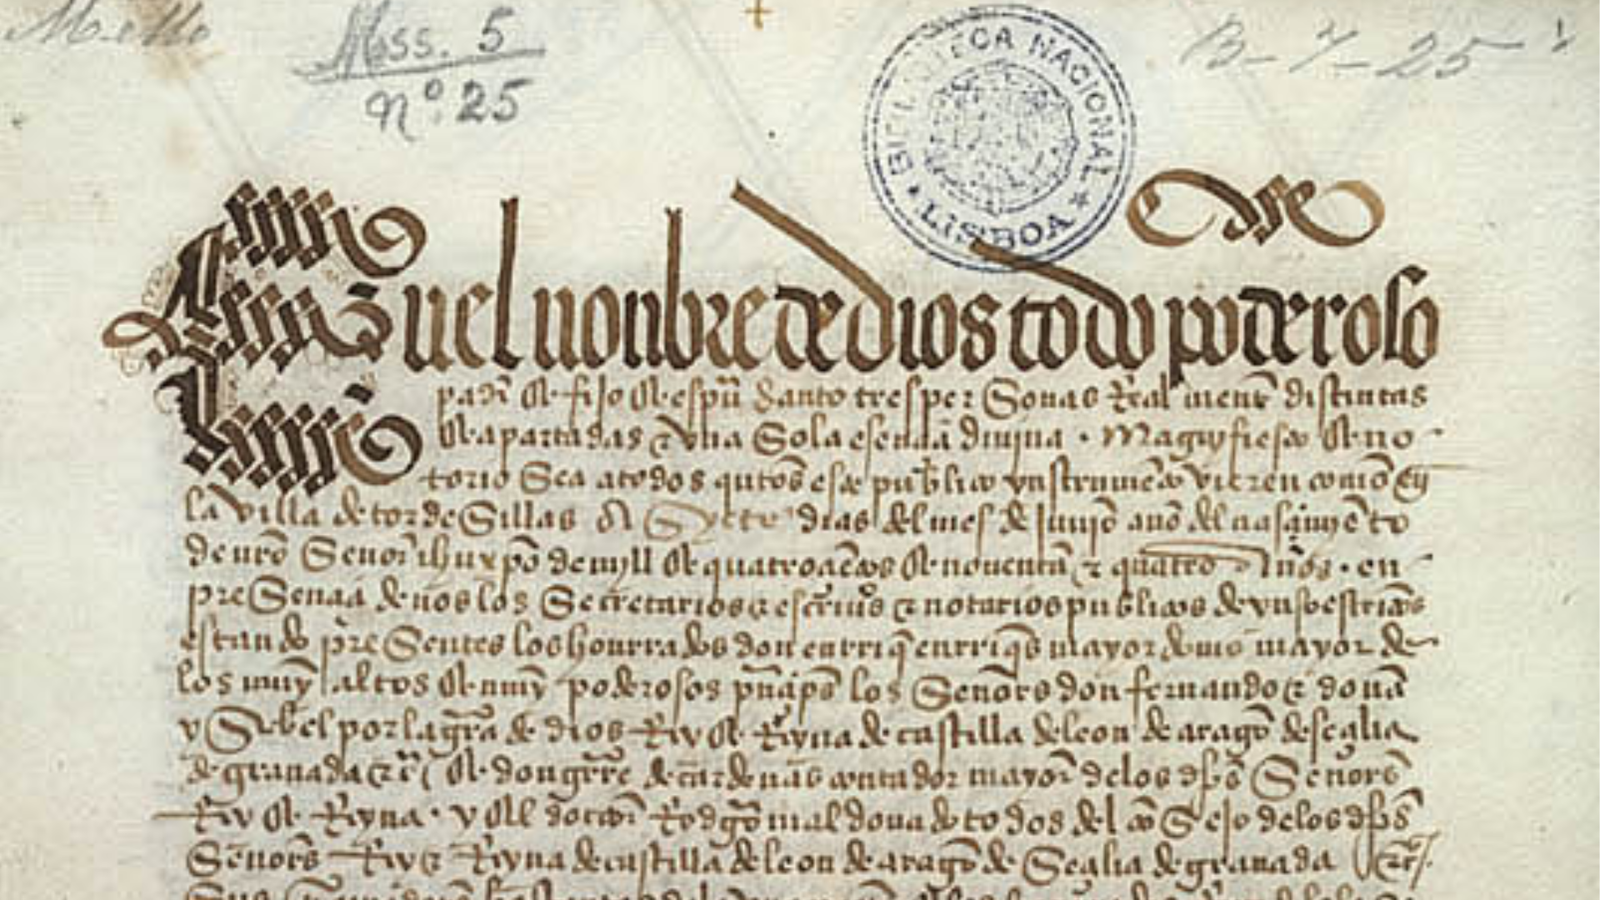 Mello
Mss. 5
nº. 25
BIBLIOTECA NACIONAL
* LISBOA *
B-7-25
En el nonbre de dios todo poderoso
padr̃ & fijo & espũ santo tres personas Realmente distintas
& apartadas & vna Sola esençia diuina · Magnyfiesto & no
torio Sea a todos qntos este publico ynstrumẽto vieren como En
la villa de tordeSillas a Syete dias del mes de Junyo año del nasçimyẽto
de nrõ Señor ihũ xpõ de myll & quatroçiẽtos & nouenta & quatro Años · en
preSençia de nos los Secretarios & escriuãos & notarios publicos de yuso escriptos
estando preSentes los honrrados don enrriq̃ enrriq̃s mayordomo mayor de
los muy altos & muy poderosos prinçipes los Señores don fernando & doña
ySabel por la graçia de dios Rey & Reyna de castilla de leon de aragõ de seçilia
de granada &c & don gutierre de cardenas contador mayor de los dichos Señores
Rey & Reyna · y el doctor Rodrigo maldonado todos del conSejo de los dichos
Señores Rey & Reyna de castilla de leon de aragõ de Seçilia de granada &c